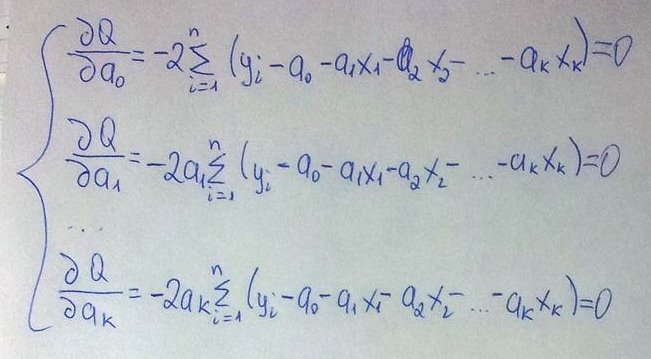 ∂Q/∂a₀ = -2 Σⁿᵢ₌₁ (yᵢ - a₀ - a₁x₁ - a₂x₂ - ... - aₖxₖ) = 0
∂Q/∂a₁ = -2a₁ Σⁿᵢ₌₁ (yᵢ - a₀ - a₁x₁ - a₂x₂ - ... - aₖxₖ) = 0
...
∂Q/∂aₖ = -2aₖ Σⁿᵢ₌₁ (yᵢ - a₀ - a₁x₁ - a₂x₂ - ... - aₖxₖ) = 0